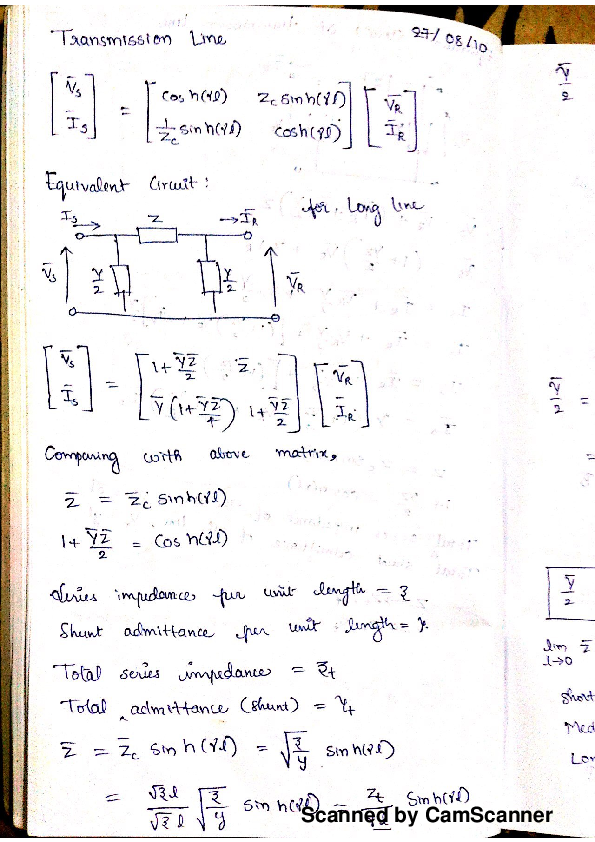 Transmission Line 27/08/10
[V̄s Īs] = [cosh(γl) Zc sinh(γl) 1/Zc sinh(γl) cosh(γl)] [V̄R ĪR]
Equivalent Circuit: for Long line
Īs Z ĪR
V̄s Y/2 Y/2 V̄R
[V̄s Īs] = [1+ȲZ̄/2 Z̄ Ȳ(1+ȲZ̄/4) 1+ȲZ̄/2] [V̄R ĪR]
Comparing with above matrix,
Z̄ = Z̄c sinh(γl)
1+ ȲZ̄/2 = Cosh(γl)
Series impedance per unit length = z
Shunt admittance per unit length = y
Total series impedance = Z̄t
Total admittance (shunt) = Yt
Z̄ = Z̄c sinh(γl) = √(z/y) sinh(γl)
= √z l/√z l √(z/y) sinh(γl) = Zt Sinh(γl)
V̄/2
Ȳ/2 =
=
Ȳ/2
lim Z̄
l→0
Short
Med
Lon
Scanned by CamScanner